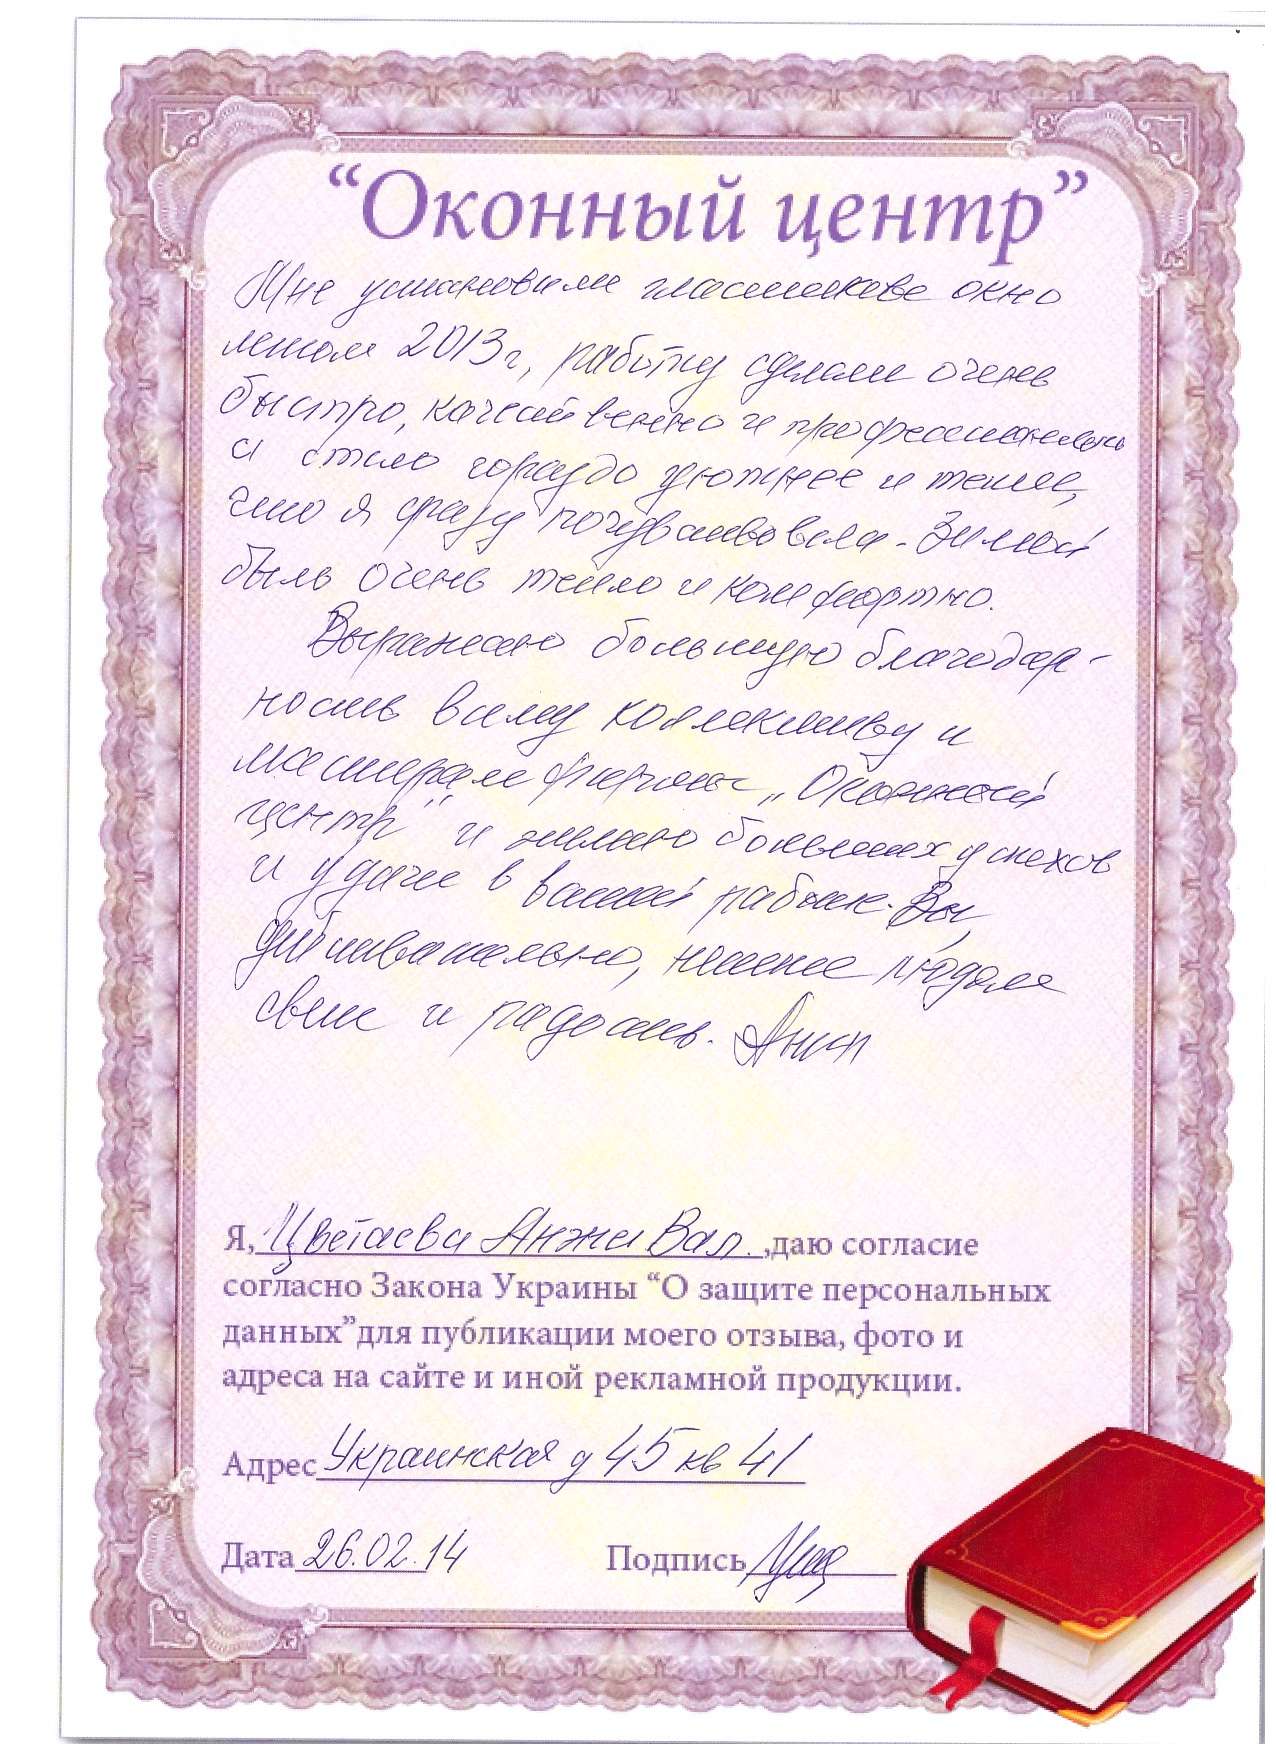 “Оконный центр”
Мне установили пластиковое окно
летом 2013 г, работу сделали очень
быстро, качественно и профессионально
и стало гораздо уютнее и теплее,
что я сразу почувствовала. Зимой
было очень тепло и комфортно.
Выражаю большую благодар-
ность всему коллективу и
мастерам фирмы „Оконный
центр" и желаю больших успехов
и удачи в вашей работе. Вы,
действительно, несете людям
свет и радость.
Я, Цветаева Анжи Вал. ,даю согласие
согласно Закона Украины “О защите персональных
данных”для публикации моего отзыва, фото и
адреса на сайте и иной рекламной продукции.
Адрес Украинская д 45 кв 41
Дата 26.02.14 Подпись